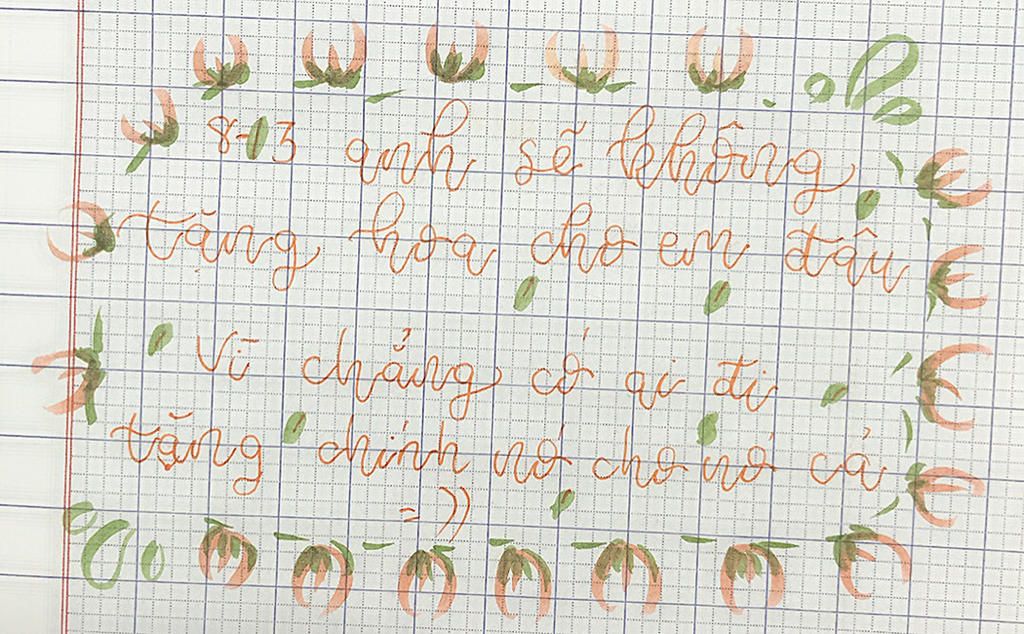 8-3 anh sẽ không
tặng hoa cho em đâu
Vì chẳng có ai đi
tặng chính nó cho nó cả
=))